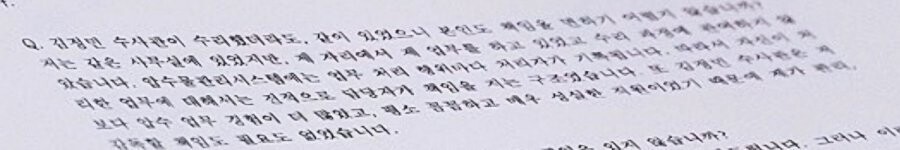 Q. 김정민 수사관이 수리했더라도, 같이 있었으니 본인도 책임을 면하기 어렵지 않습니까?
저는 같은 사무실에 있었지만, 제 자리에서 제 업무를 하고 있었고 수리 과정에 관여하지 않
았습니다. 압수물관리시스템에는 업무 처리 행위마다 처리자가 기록됩니다. 따라서 자신이 처
리한 업무에 대해서는 전적으로 담당자가 책임을 지는 구조였습니다. 또 김정민 수사관은 저
보다 압수 업무 경험이 더 많았고, 평소 꼼꼼하고 매우 성실한 직원이었기 때문에 제가 관리,
감독할 책임도 필요도 없었습니다.
있지 않습니까?
그러나